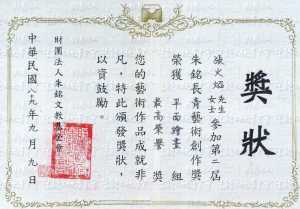 獎狀
火焰 先生
女士 參加第二屆
朱銘長青藝術創作獎
榮獲 平面繪畫 組
最高榮譽 獎
您的藝術作品成就非
凡，特此頒發獎狀，
以資鼓勵。
財團法人朱銘文教基金會
中華民國八十九年九月九日